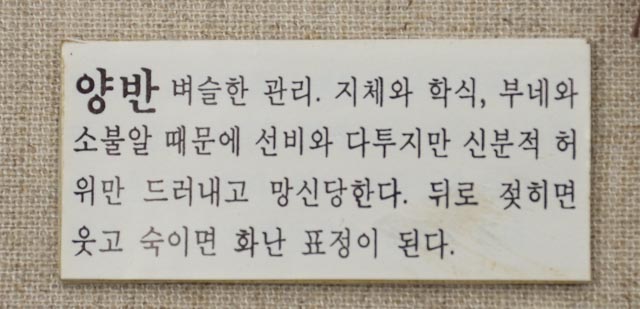 양반 벼슬한 관리. 지체와 학식, 부네와
소불알 때문에 선비와 다투지만 신분적 허
위만 드러내고 망신당한다. 뒤로 젖히면
웃고 숙이면 화난 표정이 된다.